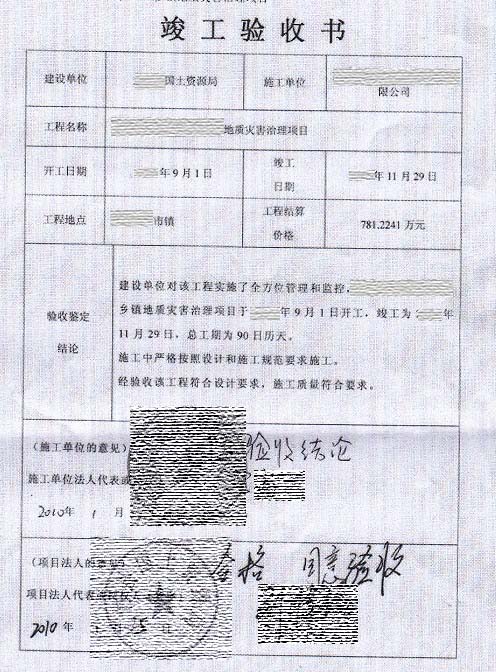 竣工验收书
建设单位 国土资源局 施工单位 限公司
工程名称 地质灾害治理项目
开工日期 年9月1日 竣工日期 年11月29日
工程地点 市镇 工程结算价格 781.2241万元
验收鉴定结论
建设单位对该工程实施了全方位管理和监控,
乡镇地质灾害治理项目于 年9月1日开工,竣工为 年
11月29日,总工期为90日历天。
施工中严格按照设计和施工规范要求施工。
经验收该工程符合设计要求,施工质量符合要求。
(施工单位的意见) 验收结论
施工单位法人代表或
2010年1月
(项目法人的 合格 同意验收
项目法人代表
2010年